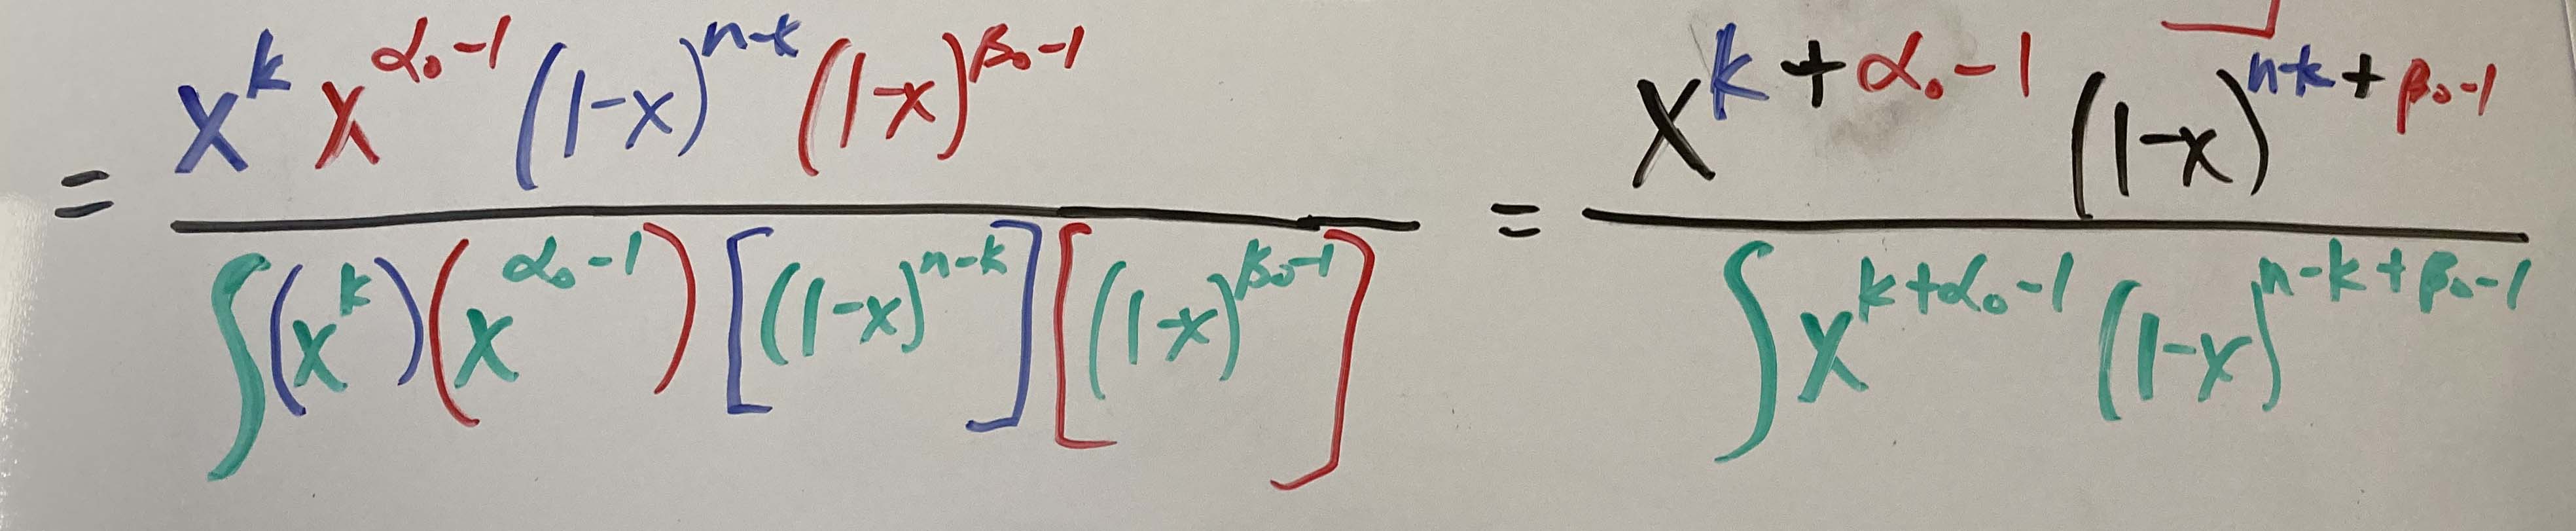 = \frac{x^{k} x^{\alpha_0-1} (1-x)^{n-k} (1-x)^{\beta_0-1}}{\int (x^{k}) (x^{\alpha_0-1}) [(1-x)^{n-k}] [(1-x)^{\beta_0-1}]} = \frac{x^{k+\alpha_0-1} (1-x)^{n-k+\beta_0-1}}{\int x^{k+\alpha_0-1} (1-x)^{n-k+\beta_0-1}}